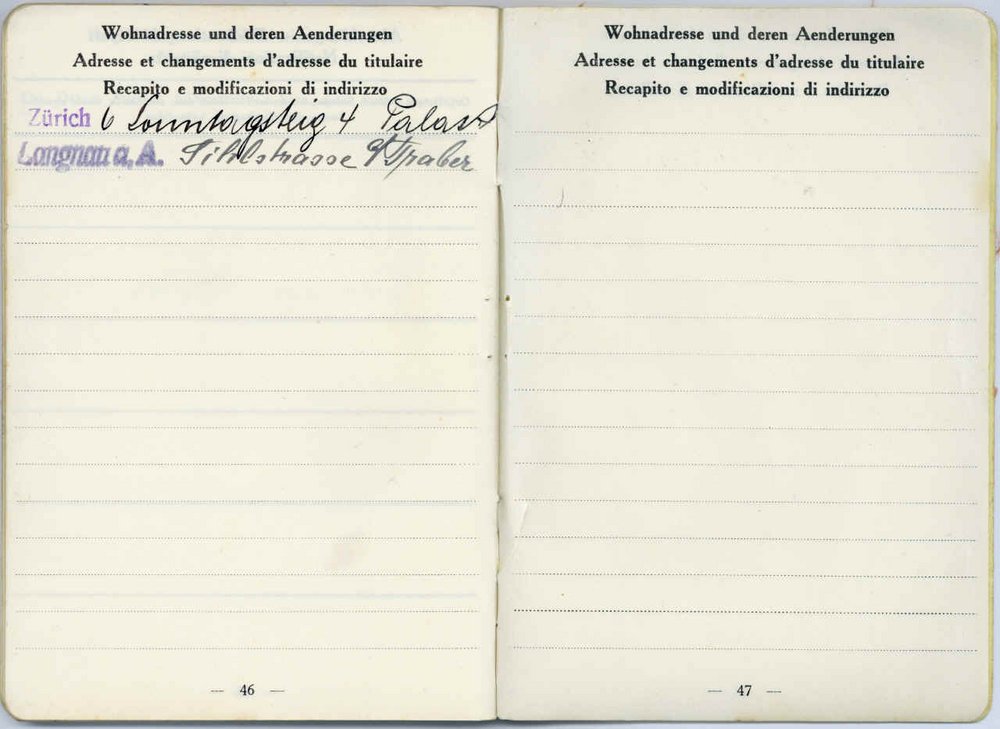 Wohnadresse und deren Aenderungen
Adresse et changements d'adresse du titulaire
Recapito e modificazioni di indirizzo
Zürich 6 Sonntagsteig 4
Langnau a, A. Sihlstrasse
— 46 —
Wohnadresse und deren Aenderungen
Adresse et changements d'adresse du titulaire
Recapito e modificazioni di indirizzo
— 47 —